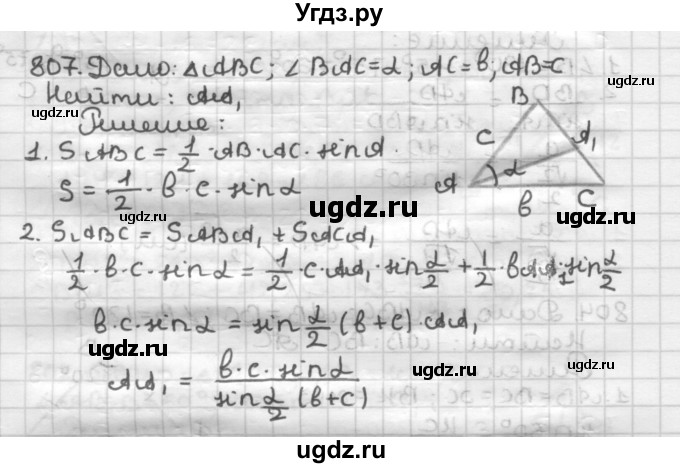 Угдз.ру
807. Дано: △ABC; ∠BAC=α; AC=b, AB=c
Найти: AA₁
Решение:
1. SABC = 1/2 · AB · AC · sin A.
S = 1/2 · b · c · sin α
B
A₁
c
α
A
b
C
2. SABC = SABA₁ + SACA₁
1/2 · b · c · sin α = 1/2 · c · AA₁ · sin α/2 + 1/2 · b AA₁ · sin α/2
b · c · sin α = sin α/2 (b+c) · AA₁
AA₁ = b · c · sin α / sin α/2 (b+c)
ugdz.ru
ugdz.ru
ugdz.ru
ugdz.ru
ugdz.ru
ugdz.ru
ugdz.ru
ugdz.ru